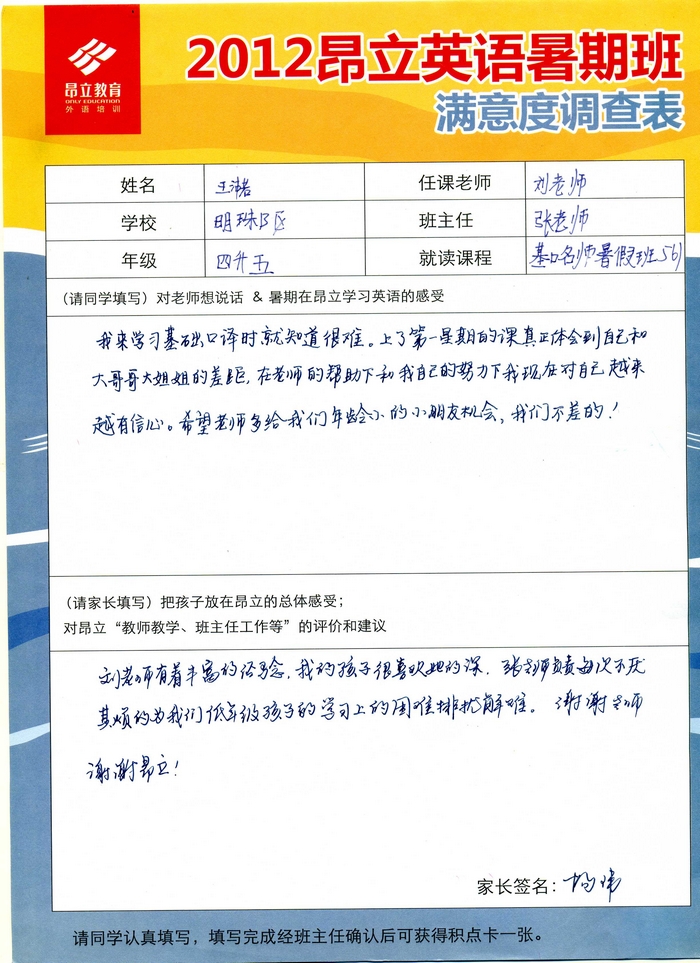 昂立教育
ONLY EDUCATION
外语培训
2012昂立英语暑期班
满意度调查表
姓名 王
任课老师 刘老师
学校 明珠B区
班主任 张老师
年级 四升五
就读课程 基口名师暑假班561
（请同学填写）对老师想说话 & 暑期在昂立学习英语的感受
我来学习基础口译时就知道很难。上了第一星期的课真正体会到自己和
大哥哥大姐姐的差距，在老师的帮助下和我自己的努力下我现在对自己越来
越有信心。希望老师多给我们年龄小的小朋友机会，我们不差的！
（请家长填写）把孩子放在昂立的总体感受；
对昂立“教师教学、班主任工作等”的评价和建议
刘老师有着丰富的经验，我的孩子很喜欢她的课．张老师负责每次不厌
其烦的为我们低年级孩子的学习上的困难排忧解难。谢谢老师
谢谢昂立！
家长签名：杨
请同学认真填写，填写完成经班主任确认后可获得积点卡一张。